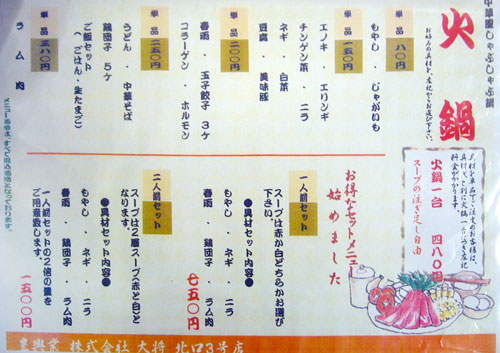 中華風しゃぶしゃぶ鍋
火鍋
お好みの具材を、左記からお選び下さい。
単品 八〇円
もやし ・ じゃがいも
単品 一五〇円
エノキ ・ エリンギ
チンゲン菜 ・ ニラ
ネギ ・ 白菜
豆腐 ・ 美味豚
単品 二〇〇円
春雨 ・ 玉子餃子 3ヶ
コラーゲン ・ ホルモン
単品 二五〇円
うどん ・ 中華そば
鶏団子 5ヶ
ご飯セット
(ごはん・生たまご)
単品 三八〇円
ラム肉
具材を単品でご注文のお客様は、
具材とは別に火鍋一台につき左記
料金がかかります。
火鍋一台 四八〇円
スープの注ぎ足し自由
お得なセットメニュー
始めました
一人前セット
スープは赤か白どちらかお選び
下さい。
●具材セット内容●
もやし ・ ネギ ・ ニラ
春雨 ・ 鶏団子 ・ ラム肉
七五〇円
二人前セット
スープは2層スープ(赤と白)と
なります。
●具材セット内容●
もやし ・ ネギ ・ ニラ
春雨 ・ 鶏団子 ・ ラム肉
一人前セットの2倍の量を
ご用意致します。
一五〇〇円
メニュー価格は、すべて税込価格となっております。
興業 株式会社 大将 北口3号店